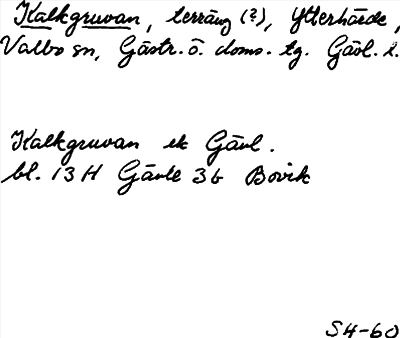 Kalkgruvan, terräng (?), Ytterhärde,
Valbo sn, Gästr. ö. doms. tg. Gävl. l.
Kalkgruvan ek Gävl.
bl. 13H Gävle 3b Bovik
S4-60